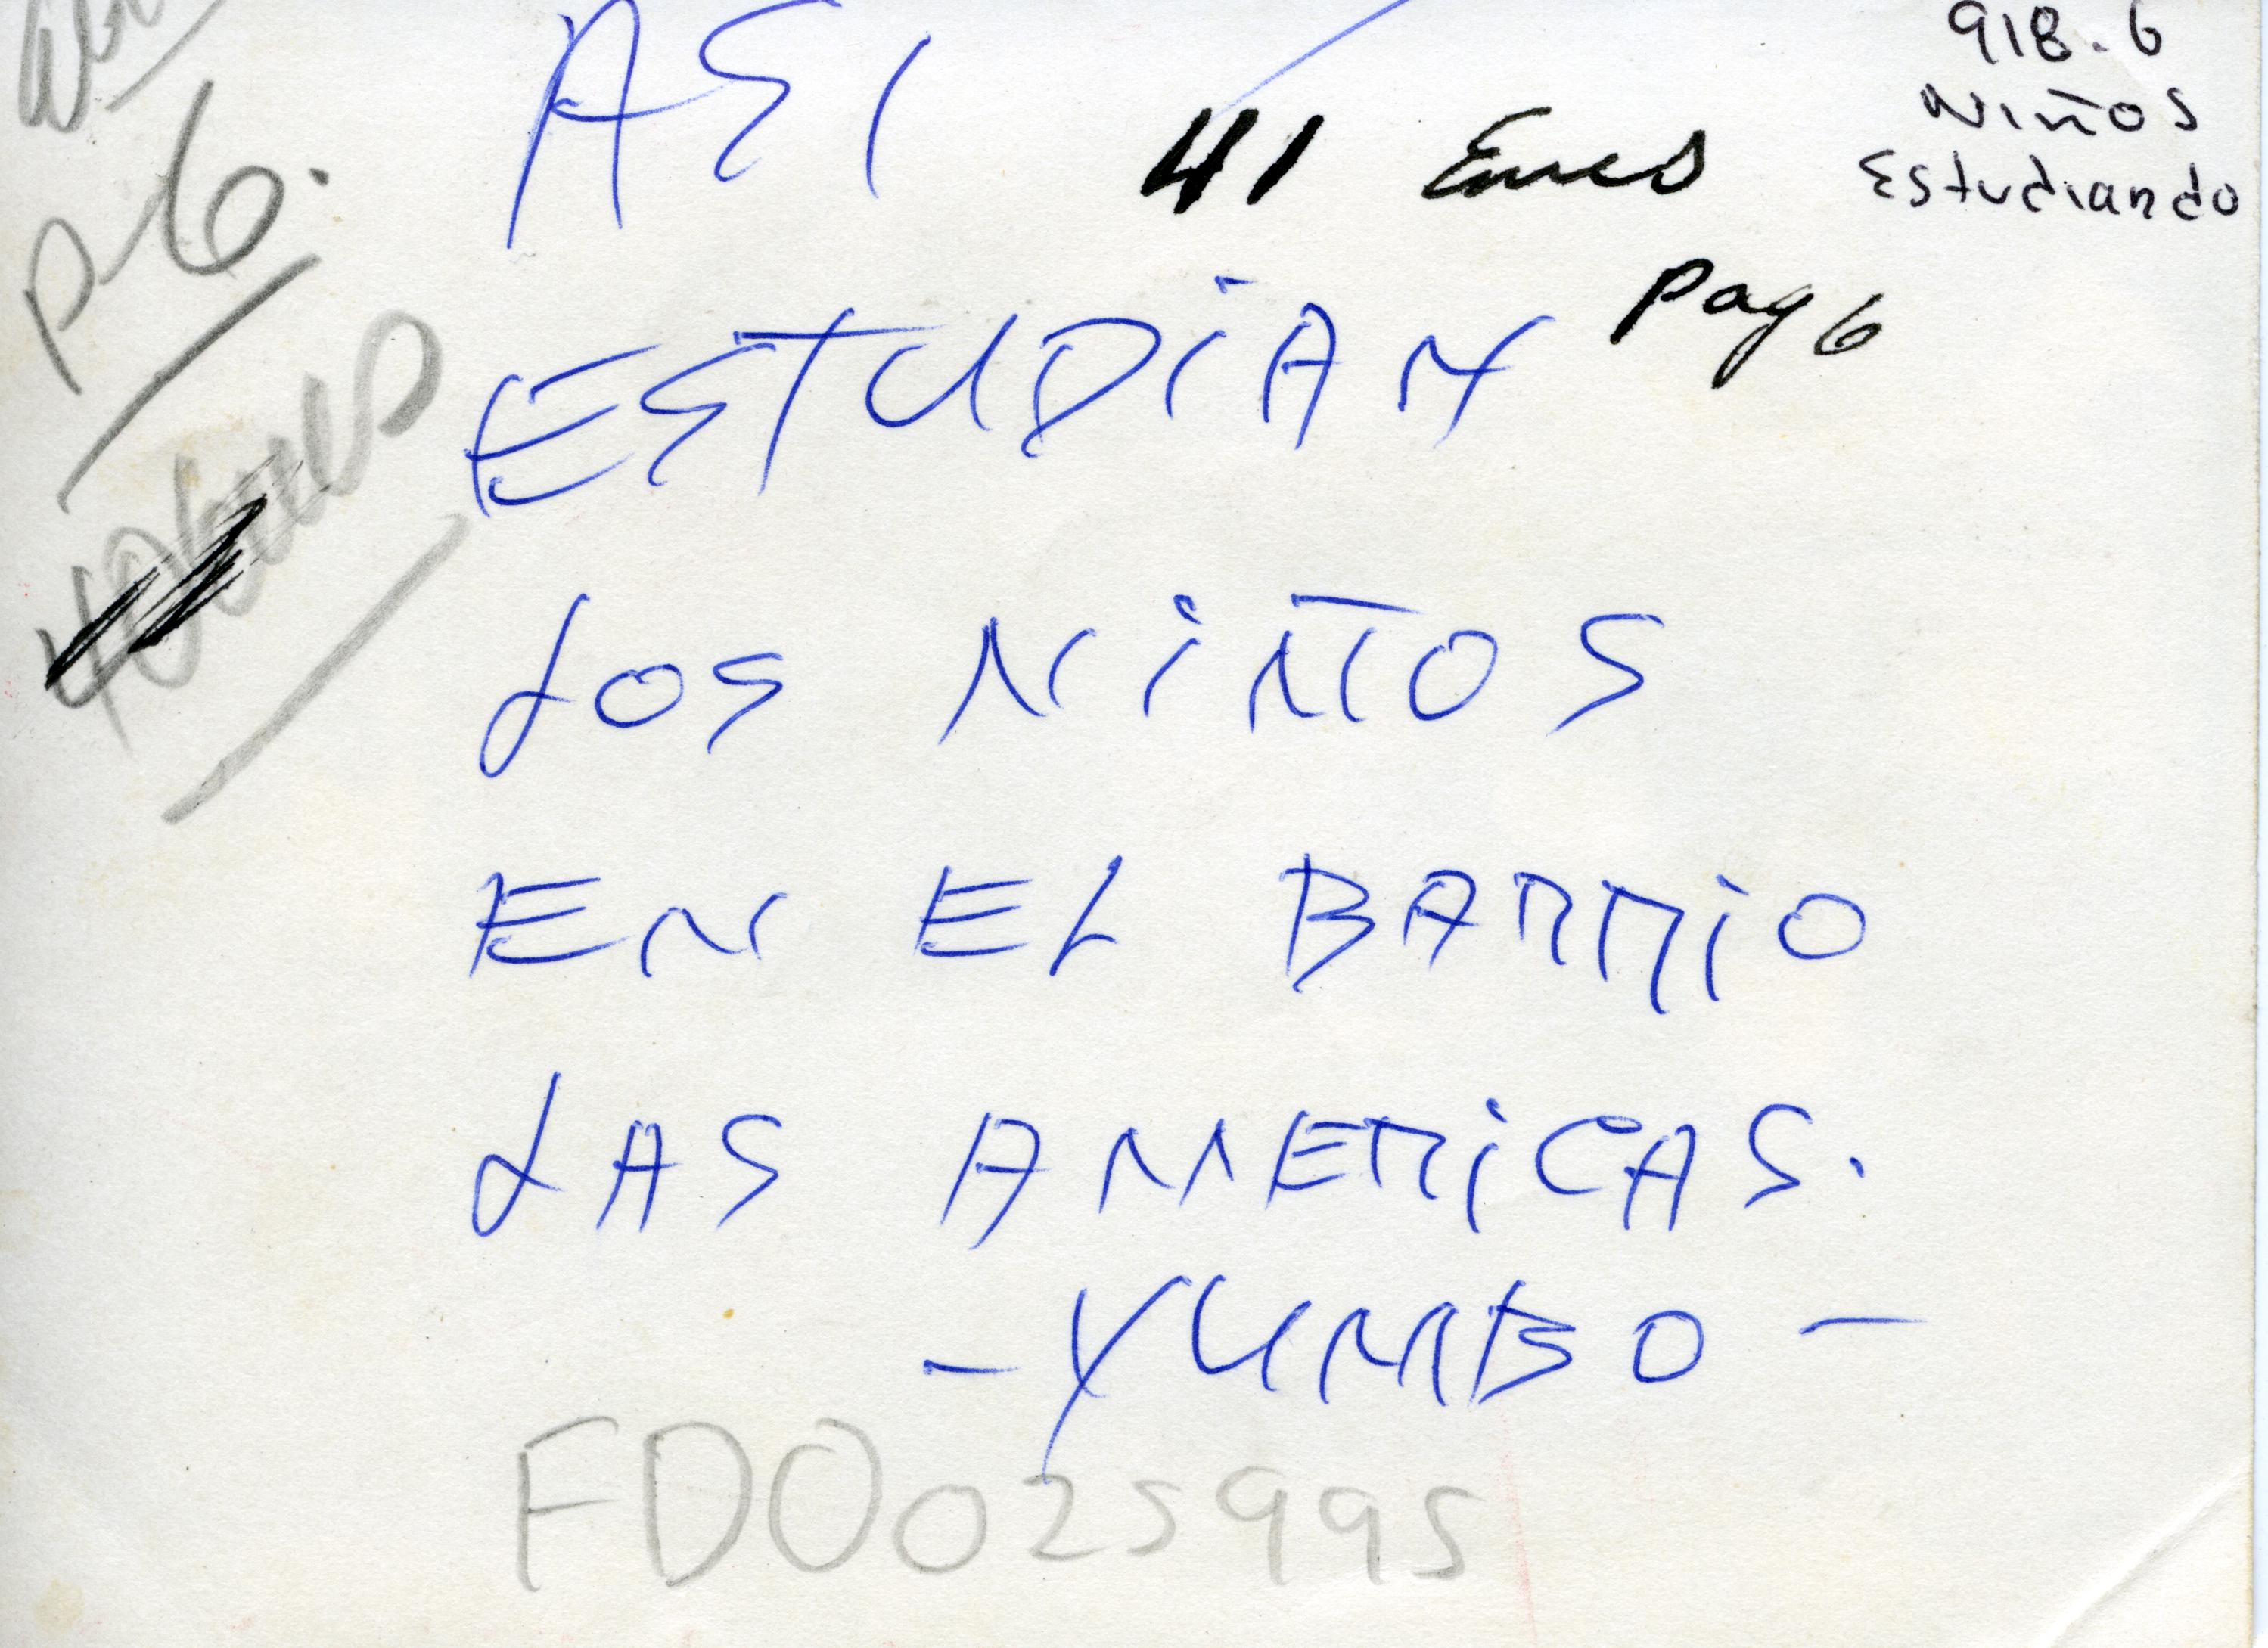 918.6
Niños
Estudiando
ASI
41 Emes
Pag 6
P-6.
ESTUDIAN
LOS NIÑOS
EN EL BARRIO
LAS AMERICAS.
- YUMBO -
FDO025995